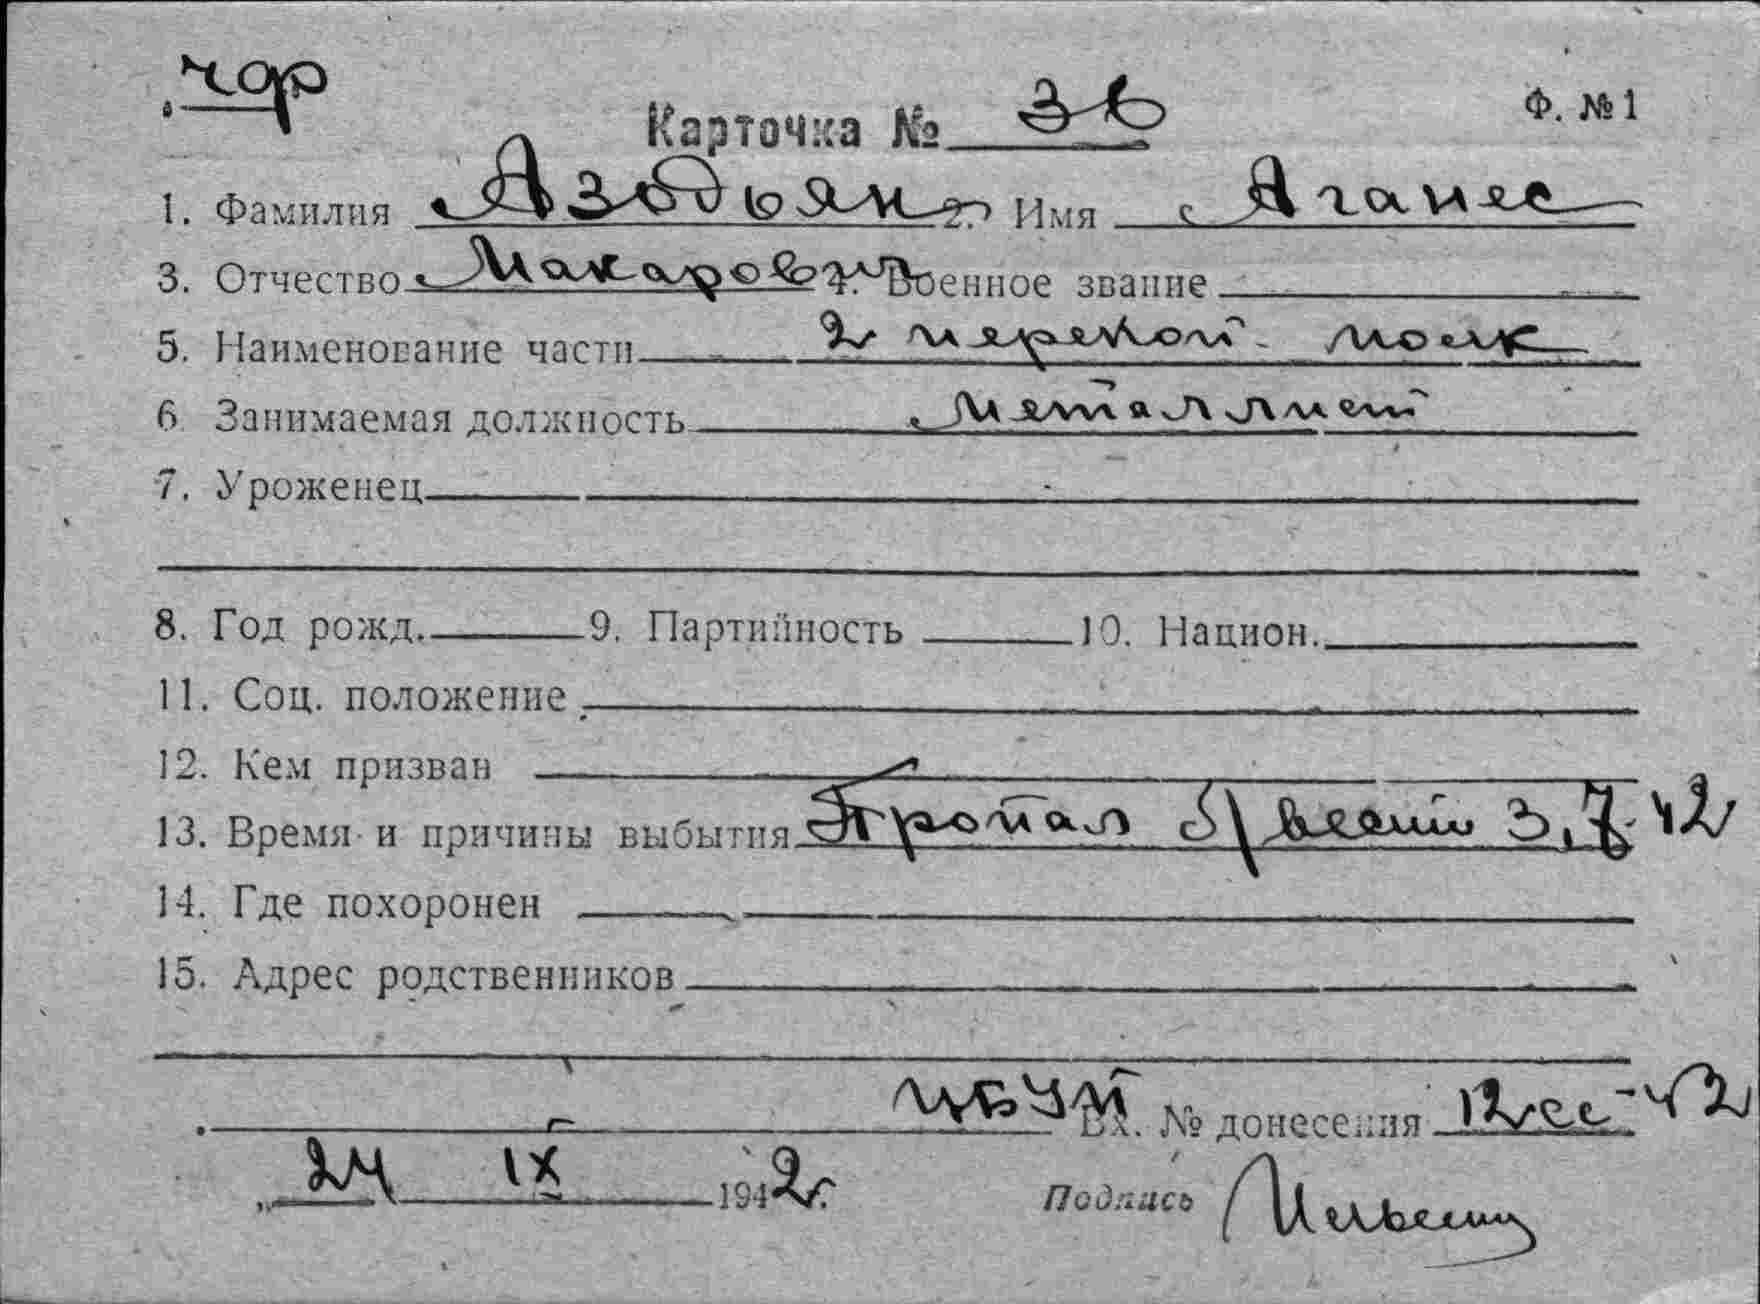 чор
Карточка № 36 Ф. № 1
1. Фамилия Азодьян 2. Имя Аганес
3. Отчество Макаров. 4. Военное звание
5. Наименование части 2й перекоп. полк
6. Занимаемая должность Металлист
7. Уроженец
8. Год рожд. 9. Партийность 10. Национ.
11. Соц. положение
12. Кем призван
13. Время и причины выбытия Пропал б/вести 3.7.42
14. Где похоронен
15. Адрес родственников
Вх. № донесения 12сс-42
"24 IX 1942г.
Подпись